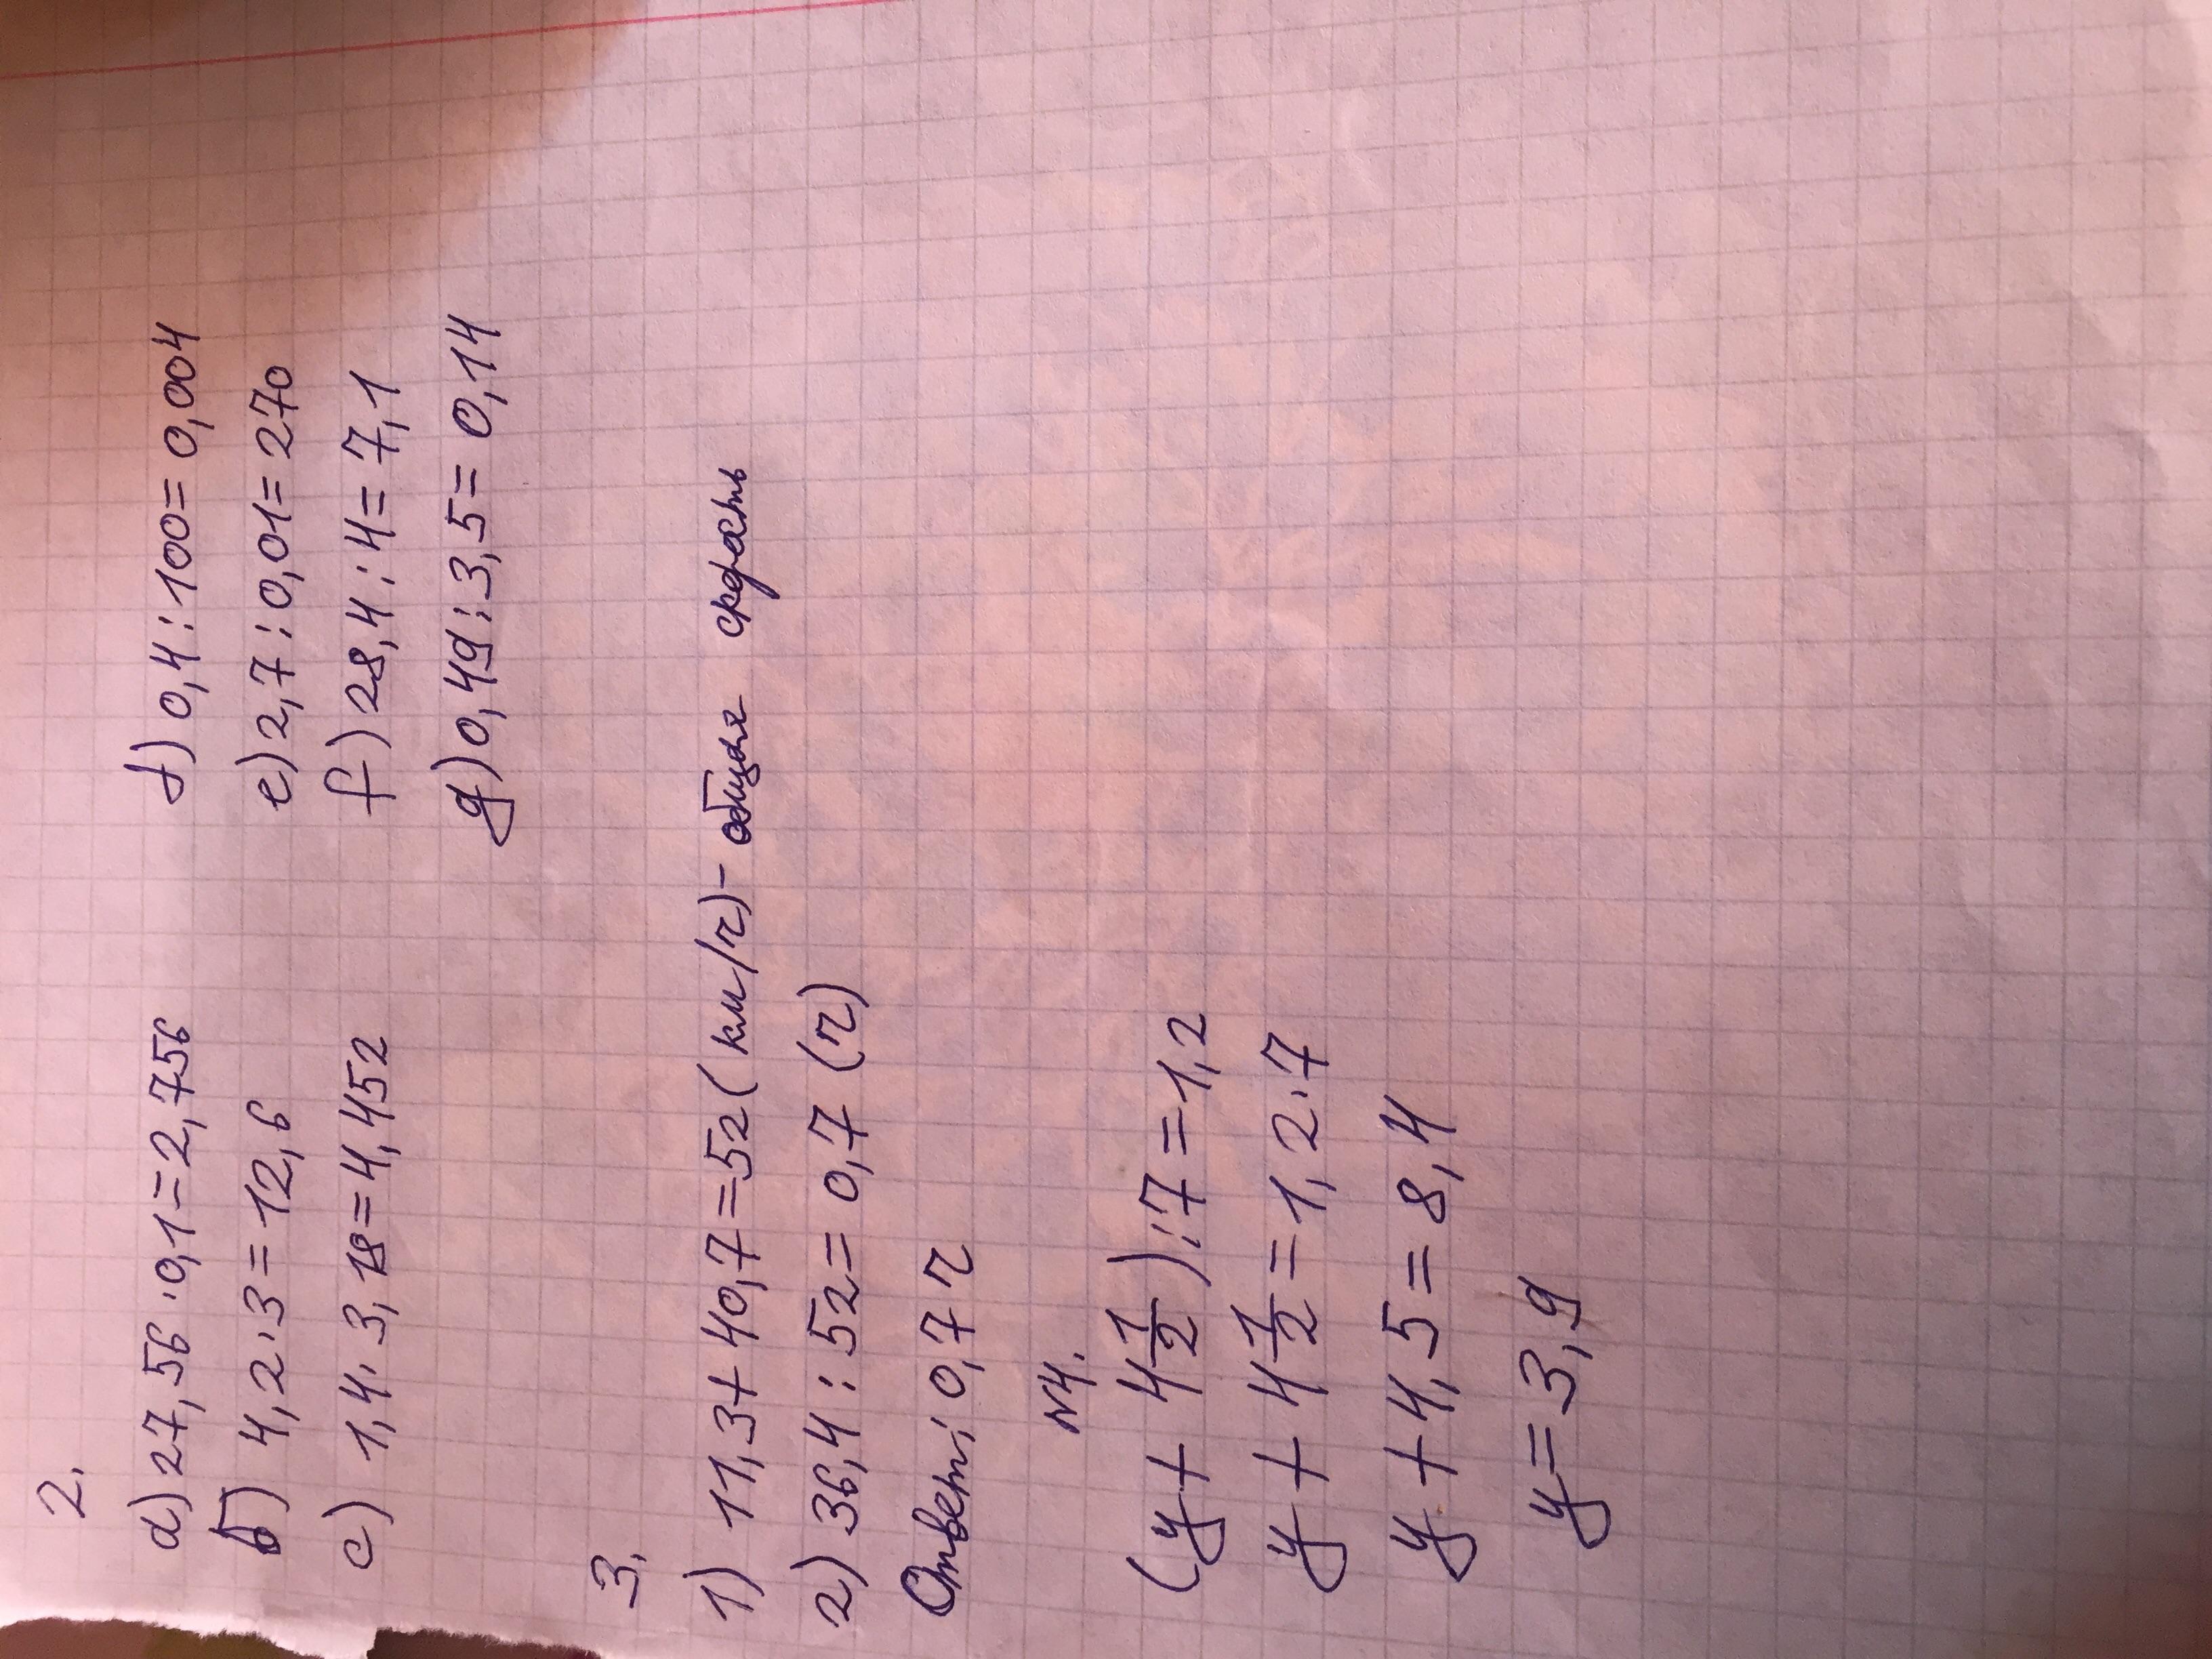 2.
a) 27,56 · 0,1 = 2,756
б) 4,2 · 3 = 12,6
c) 1,4 · 3,18 = 4,452
d) 0,4 : 100 = 0,004
e) 2,7 : 0,01 = 270
f) 28,4 : 4 = 7,1
g) 0,49 : 3,5 = 0,14
3.
1) 11,3 + 40,7 = 52 (км/ч) - общая скрость
2) 36,4 : 52 = 0,7 (ч)
Ответ: 0,7 ч
№4.
(y + 4 1/2) : 7 = 1,2
y + 4 1/2 = 1,2 · 7
y + 4,5 = 8,4
y = 3,9